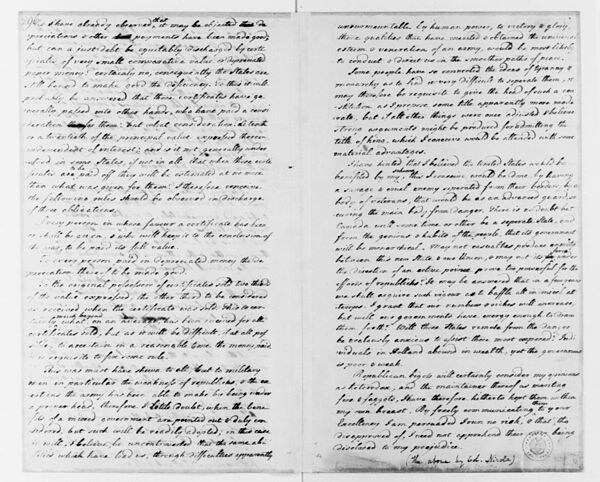 I have already observed, that it may be objected that de-
preciations & other payments have been made good;
but can a just debt be equitably discharged by certi-
ficates of very small comparative value or depreciated
paper money? certainly no, consequently the States are
still bound to make good the deficiency. To this it will
probably be answered that these certificates have ge-
nerally passed into other hands, who have paid a consi-
deration for them: But what consideration? a tenth
or a twentieth of the principal value expressed therein
independent of interest; and is it not generally under-
stood in some States, if not in all, that when these certi-
ficates are to be paid off they will be estimated at no more
than what was given for them? I therefore conceive
the following rules should be observed in discharge
of these obligations.
Every person in whose favour a certificate has been
or shall be given, & who will keep it to the conclusion of
the war, to be paid its full value.
To every person paid in depreciated money the de-
preciation thereof to be made good.
To the original possessor of certificates sold two thirds
of the value expressed, the other third to be considered
as received when the certificate was sold. This is cer-
tainly beyond what on an average has been received for all
certificates sold, but as it will be difficult, if at all pos-
sible, to ascertain in a reasonable time the money paid,
it is requisite to fix some rule.
This war must have shewn to all, but to military
men in particular the weakness of republicks, & the ex-
ertions the army has been able to make by being under
a proper head, therefore I little doubt, when the bene-
fits of a mixed government are pointed out & duly con-
sidered, but such will be readily adopted; in this case
it will, I believe, be uncontroverted that the same abi-
lities which have lead us, through difficulties apparently
unsurmountable by human power, to victory & glory,
those qualities that have merited & obtained the universal
esteem & veneration of an army, would be most likely
to conduct & direct us in the smoother paths of peace.
Some people have so connected the ideas of tyranny &
monarchy as to find it very difficult to separate them, it
may therefore be requisite to give the head of such a con-
stitution as I propose, some title apparently more mode-
rate, but if all other things were once adjusted I believe
strong arguments might be produced for admitting the
title of king, which I conceive would be attended with some
material advantages.
I have hinted that I believed the United States would be
benefited by my scheme, this I conceive would be done, by having
a savage & cruel enemy separated from their borders, by a
body of veterans, that would be as an advanced guard, se-
curing the main body from danger. There is no doubt but
Canada will some time or other be a separate State, and
from the genious & habits of the people, that its government
will be monarchical. May not casualties produce enmity
between this new State & our Union, & may not its force under
the direction of an active prince prove too powerful for the
efforts of republicks? It may be answered that in a few years
we shall acquire such vigour as to baffle all inimical at-
tempts. I grant that our numbers & riches will increase,
but will our governments have energy enough to draw
them forth? Will those States remote from the danger
be zealously anxious to assist those most exposed? Indi-
viduals in Holland abound in wealth, yet the government
is poor & weak.
Republican bigots will certainly consider my opinions
as heterodox, and the maintainer thereof as meriting
fire & faggots, I have therefore hitherto kept them within
my own breast. By freely communicating them to your
Excellency I am persuaded I run no risk, & that, tho
disapproved of, I need not apprehend their ever being
disclosed to my prejudice.
(The above by Col. Nicola)